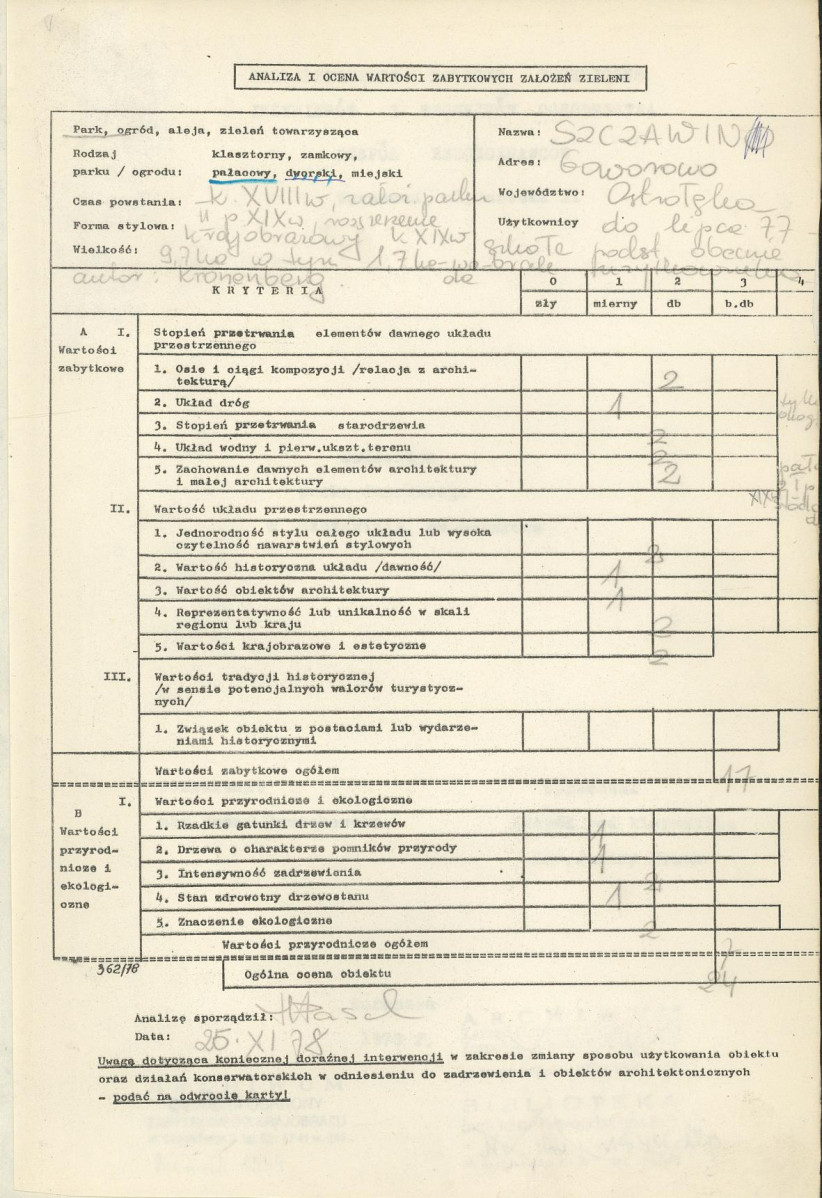 ANALIZA I OCENA WARTOŚCI ZABYTKOWYCH ZAŁOŻEŃ ZIELENI
Park, ogród, aleja, zieleń towarzysząca
Nazwa: SZCZAWIN
Rodzaj klasztorny, zamkowy,
parku / ogrodu: pałacowy, dworski, miejski
Adres: Goworowo
Czas powstania: k. XVIII w, założ parku
Województwo: Ostrołęka
II p XIX w, rozszerzenie
Forma stylowa: krajobrazowy k XIX w
Użytkownicy do lipca 77 -
Wielkość: 9,7 ha w tym 1,7 ha
szkoła podst. obecnie
autor: Kronenberg
KRYTERIA
0 1 2 3 4
zły mierny db b.db
A I. Stopień przetrwania elementów dawnego układu
przestrzennego
Wartości
zabytkowe
1. Osie i ciągi kompozycji /relacja z archi-
tekturą/ 2
2. Układ dróg 1
3. Stopień przetrwania starodrzewia 2
4. Układ wodny i pierw.ukszt.terenu 2
5. Zachowanie dawnych elementów architektury
i małej architektury 2
XIX w
II. Wartość układu przestrzennego
1. Jednorodność stylu całego układu lub wysoka
czytelność nawarstwień stylowych 2
2. Wartość historyczna układu /dawność/ 1
3. Wartość obiektów architektury 1
4. Reprezentatywność lub unikalność w skali
regionu lub kraju 2
5. Wartości krajobrazowe i estetyczne 2
III. Wartości tradycji historycznej
/w sensie potencjalnych walorów turystycz-
nych/
1. Związek obiektu z postaciami lub wydarze-
niami historycznymi
Wartości zabytkowe ogółem 17
B I. Wartości przyrodnicze i ekologiczne
Wartości
przyrod-
nicze i
ekologi-
czne
1. Rzadkie gatunki drzew i krzewów 1
2. Drzewa o charakterze pomników przyrody 1
3. Intensywność zadrzewienia 2
4. Stan zdrowotny drzewostanu 1
5. Znaczenie ekologiczne 2
Wartości przyrodnicze ogółem 7
362/78
Ogólna ocena obiektu 24
Analizę sporządził:
Data: 25.XI 78
Uwagę dotycząca koniecznej doraźnej interwencji w zakresie zmiany sposobu użytkowania obiektu
oraz działań konserwatorskich w odniesieniu do zadrzewienia i obiektów architektonicznych
- podać na odwrocie karty!